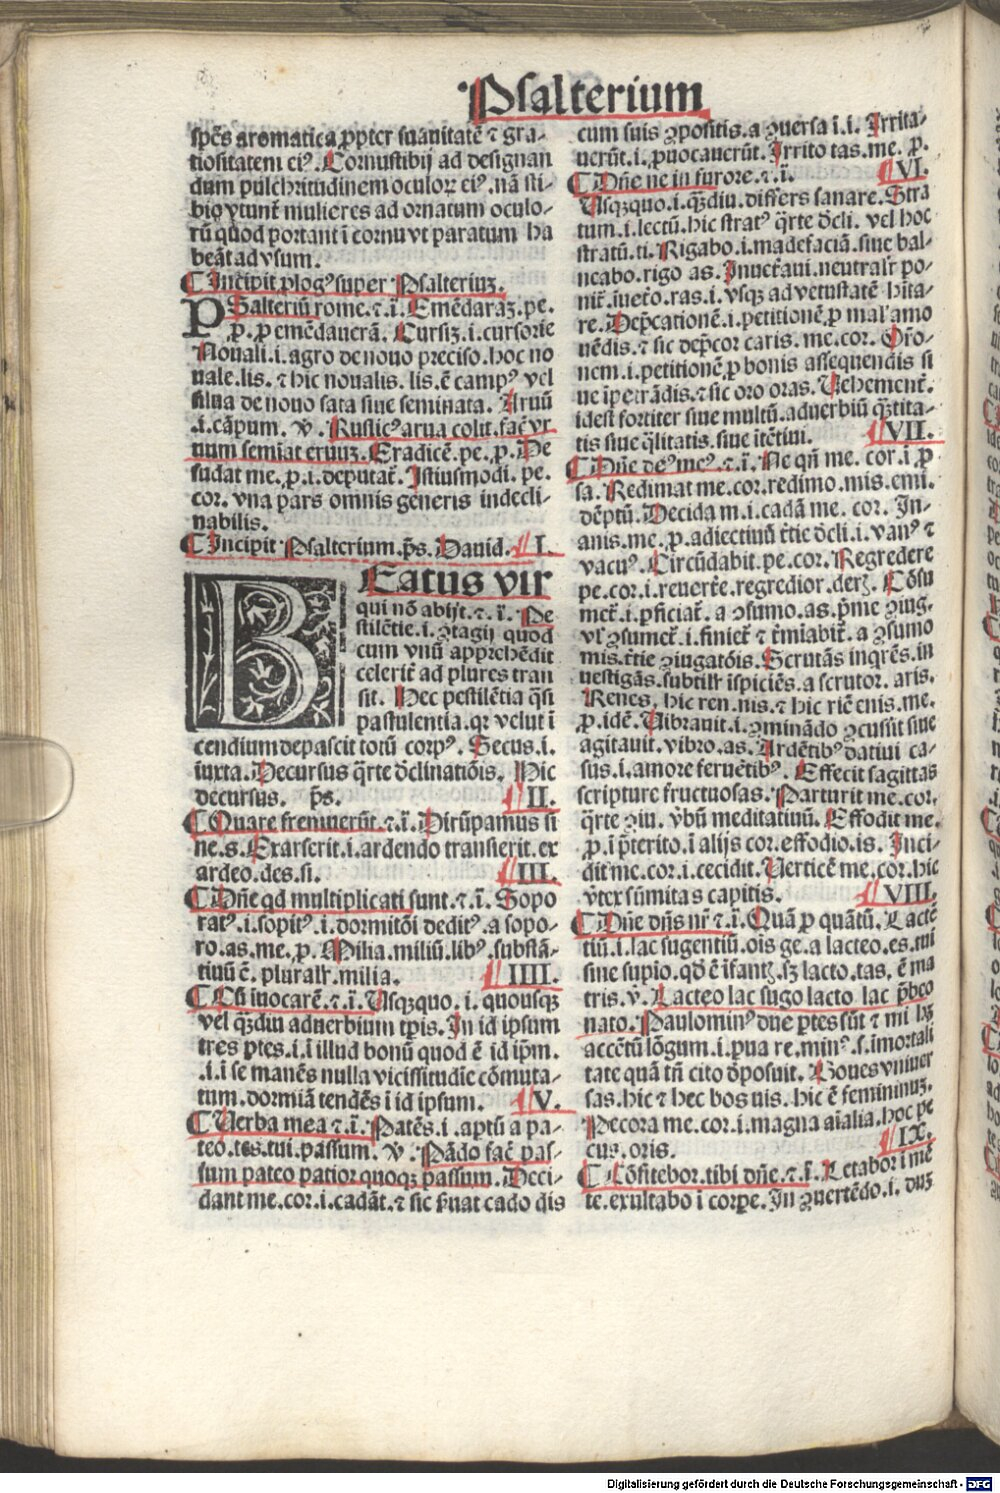 Psalterium
spēs aromatica ꝓpter suauitatē ⁊ gra-
tiositatem eiꝰ. Cornustibij ad designan
dum pulchritudinem oculoꝝ eiꝰ. nā sti-
bio vtunt̃ mulieres ad ornatum oculo-
rū quod portant ī cornu vt paratum ha
beāt ad vsum.
¶ Incipit ꝓlogꝰ super Psalteriuꝫ.
PSalteriū rome. ⁊ ī. Emēdaraꝫ. pe.
p. ꝓ emēdauerā. Cursiꝫ. i. cursorie
Nouali. i. agro de nouo preciso. hoc no
uale. lis. ⁊ hic noualis. lis. ē campꝰ vel
silua de nouo sata siue seminata. Aruū
.i. cāpum. v̄. Rusticꝰ arua colit. fac̄ vr
num semīat eruuꝫ. Eradicē. pe. p. De
sudat me. p. i. deputat̃. Istiusmodi. pe.
cor. vna pars omnis generis indecli-
nabilis.
¶ Incipit Psalterium. p̄s. Dauid. I.
BEatus vir
qui nō abijt. ⁊. ī. Pe
stilētie. i. ꝯtagij quod
cum vnū apprehēdit
celerit̃ ad plures tran
sit. Hec pestilētia q̄si
pastulentia. qꝛ velut ī
cendium depascit totū corpꝰ. Secus. i.
iuxta. Decursus q̄rte d̄clinatiōis. Hic
decursus. p̄s. II.
¶ Quare fremuerūt. ⁊. ī. Dirūpamus si
ne. s. Exarserit. i. ardendo transierit. ex
ardeo. des. si. III.
¶ Dn̄e qd multiplicati sunt. ⁊. ī. Sopo
ratꝰ. i. sopitꝰ. i. dormitōi deditꝰ. a sopo-
ro. as. me. p. Milia. miliū. libꝰ. substā-
tiuū ē. pluralr̄. milia. IIII.
¶ Cū īuocarē. ⁊. ī. Usqꝫquo. i. quousqꝫ
vel qꝫdiu aduerbium tp̄is. In id ipsum
tres ptes. i. ī illud bonū quod ē id ip̄m.
.i. ī se manēs nulla vicissitudīe cōmuta-
tum. dormiā tendēs ī id ipsum. V.
¶ Uerba mea ⁊. ī. Patēs. i. aptū a pa-
teo. tes. tui. passum. v̄. Pādo fac̄ pas-
sum pateo patior quoqꝫ passum. Deci-
dant me. cor. i. cadāt. ⁊ sic ẜuat cado dis
cum suis ꝯpositis. a ꝯuersa ī. i. Irrita-
uerūt. i. ꝓuocauerūt. Irrito tas. me. p.
¶ Dn̄e ne in furore. ⁊. ī. VI.
Usqꝫquo. i. qꝫdiu. differs sanare. Stra
tum. i. lectū. hic stratꝰ q̄rte d̄cli. vel hoc
stratū. ti. Rigabo. i. madefaciā. siue bal-
neabo. rigo as. Inuet̃aui. neutralr̄ po-
nit̃. īuet̃o. ras. i. vsqꝫ ad vetustatē hita-
re. Dep̄cationē. i. petitionē. ꝓ mal' amo
uēdis. ⁊ sic dep̄cor caris. me. cor. Oro-
nem. i. petitionē. ꝓ bonis assequendis si
ue īpetrādis. ⁊ sic oro oras. Uehement̃.
idest fortiter siue multū. aduerbiū qꝫtita-
tis siue q̄litatis. siue itētiui. VII.
¶ Dn̄e deꝰ meꝰ. ⁊. ī. Ne qn̄ me. cor. i. p
sa. Redimat me. cor. redimo. mis. emi.
dēptū. Decida m. i. cadā me. cor. In-
anis. me. p. adiectiuū t̄tie d̄cli. i. vanꝰ ⁊
vacuꝰ. Circūdabit. pe. cor. Regredere
pe. cor. i. reuert̃e. regredior. derꝫ. Cōsu
met̃. i. ꝑficiat̃. a ꝯsumo. as. p̄me ꝯiug.
vl' ꝯsumet̃. i. finiet̃ ⁊ t̄miabit̃. a ꝯsumo
mis. t̄tie ꝯiugatōis. Scrutās inqrēs. in
uestigās. subtilr̄ īspiciēs. a scrutor. aris.
Renes. hic ren. nis. ⁊ hic riē enis. me.
p. idē. Uibrauit. i. ꝯminādo ꝯcussit siue
agitauit. vibro. as. Ardētibꝰ datiui ca-
sus. i. amore feruētibꝰ. Effecit sagittas
scripture fructuosas. Parturit me. cor.
q̄rte ꝯiu. vbū meditatiuū. Effodit me.
p. i p̄terito. i alijs cor. effodio. is. Inci-
dit me. cor. i. cecidit. Uerticē me. cor. hic
v̄tex sūmitas capitis. VIII.
¶ Dn̄e dn̄s nr̄ ⁊. ī. Quā ꝓ quātū. Lactē
tiū. i. lac sugentiū. ois ge. a lacteo. es. tui
sine supio. qd ē īfantꝫ. sꝫ lacto. tas. ē ma
tris. v̄. Lacteo lac sugo lacto lac p̄beo
nato. Paulominꝰ due ptes sūt ⁊ mi hꝫ
accētū lōgum. i. ꝓua re. minꝰ. s. īmortali
tate quā tn̄ cito d̄posuit. Boues vniuer
sas. hic ⁊ hec bos uis. hic ē femininuꝫ.
Pecora me. cor. i. magna aīalia. hoc pe
cus. oris. IX.
¶ Cōfitebor. tibi dn̄e. ⁊. ī. Letabor i mē
te. exultabo i corpe. In ꝯuertēdo. i. duꝫ
Digitalisierung gefördert durch die Deutsche Forschungsgemeinschaft - DFG